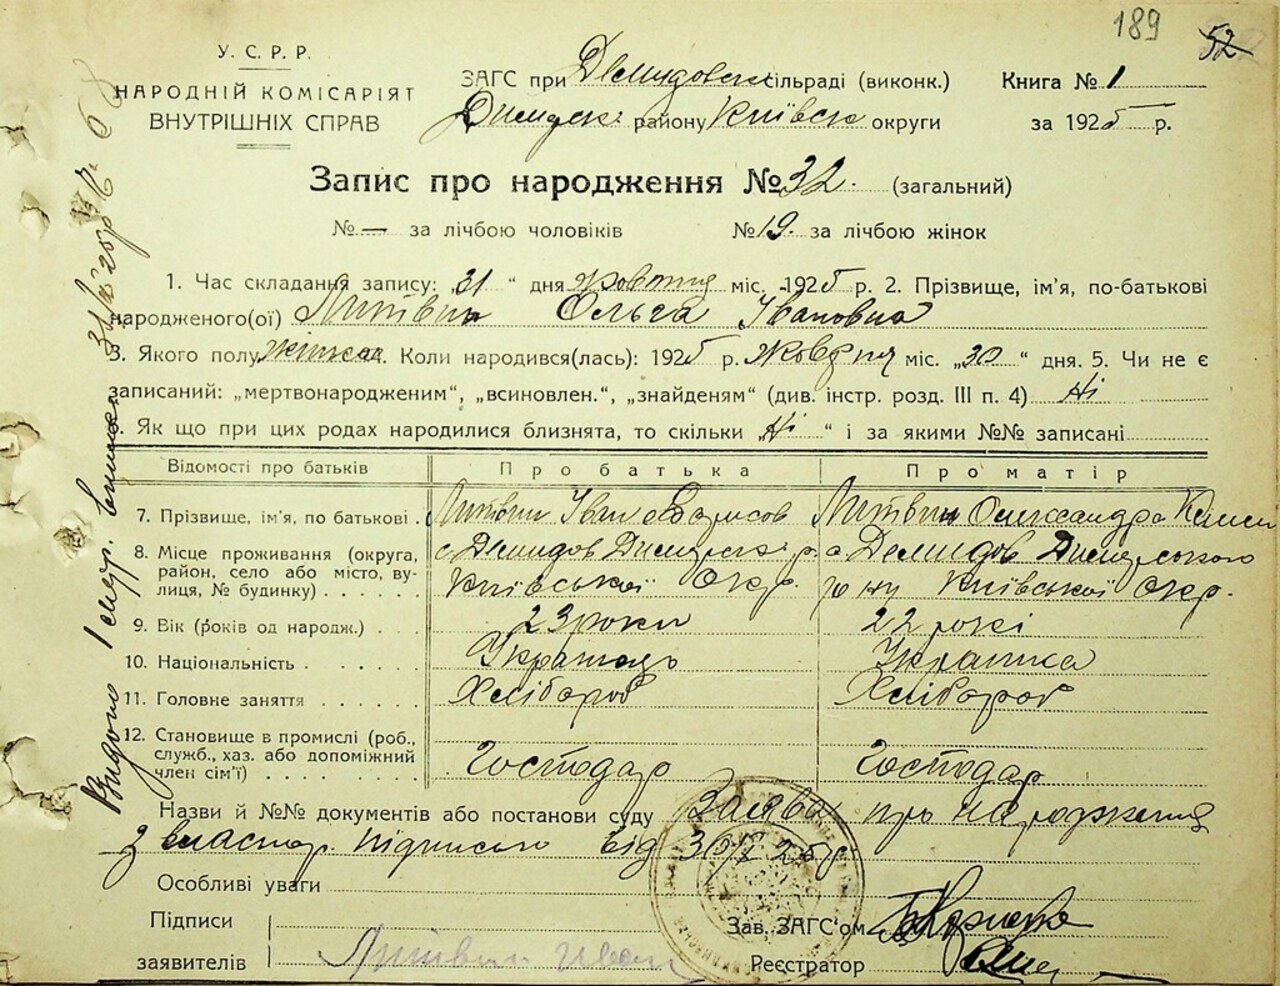 189 52
У. С. Р. Р.
НАРОДНІЙ КОМІСАРІЯТ
ВНУТРІШНІХ СПРАВ
ЗАГС при Демидовск. сільраді (виконк.) Книга № 1
Димерск. району Київськ округи за 1925 р.
Запис про народження № 32. (загальний)
№ — за лічбою чоловіків № 19. за лічбою жінок
1. Час складання запису: „31" дня жовтня міс. 1925 р. 2. Прізвище, ім'я, по-батькові
народженого(ої) Литвин Ольга Івановна
3. Якого полу жіноч. Коли народився(лась): 1925 р. Жовтня міс. „30" дня. 5. Чи не є
записаний: „мертвонародженим", „всиновлен.", „знайденям" (див. інстр. розд. III п. 4) Ні
Як що при цих родах народилися близнята, то скільки „Ні" і за якими №№ записані
Відомості про батьків Про батька Про матір
7. Прізвище, ім'я, по батькові Литвин Іван Борисов Литвин Олександра
8. Місце проживання (округа, район, село або місто, вулиця, № будинку) с Демидов Димерск. р. Київської Окр. с Демидов Димерського Київської Окр.
9. Вік (років од народж.) 23 роки 22 рокі
10. Національність Українець Українка
11. Головне заняття Хлібороб Хлібороб
12. Становище в промислі (роб., служб., хаз. або допоміжний член сім'ї) Господар Господар
Назви й №№ документів або постанови суду Заява про народження
з власнор. підписом від 25 р.
Особливі уваги
Підписи
заявителів Литвин Иван
Зав. ЗАГС'ом
Реєстратор
Видано